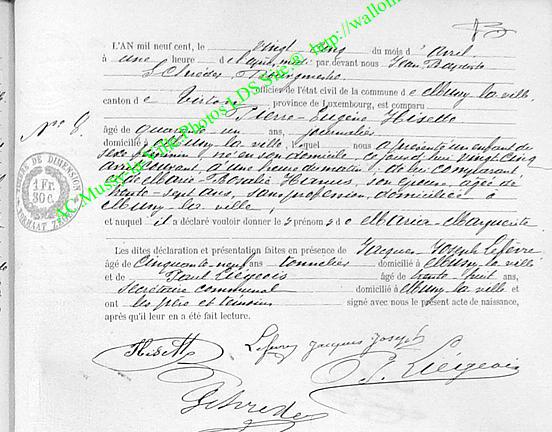 L'AN mil neuf cent, le vingt cinq du mois d'avril
à une heure de l'après midi par devant nous Jean Baptiste
Schréder Bourgmestre
officier de l'état civil de la commune de Mussy-la-ville,
canton de Virton, province de Luxembourg, est comparu
Pierre-Eugène Hisette
âgé de quarante un ans, journalier
domicilié à Mussy-la-ville, lequel nous a présenté un enfant de
sexe féminin, né en son domicile ce jourd'hui vingt cinq
avril courant, à une heure du matin, de lui comparant
et de Marie son épouse, âgée de
trente-sept ans, sans profession, domiciliée à
Mussy-la-ville;
et auquel il a déclaré vouloir donner les prénoms de Maria-Marguerite
Les dites déclaration et présentation faites en présence de Jacques-Joseph Lefèvre
âgé de cinquante-neuf ans tonnelier domicilié à Mussy-la-ville
et de Paul Liégeois âgé de trente-huit ans,
secrétaire communal domicilié à Mussy-la-ville et
ont les père et témoins signé avec nous le présent acte de naissance,
après qu'il leur en a été fait lecture.
Hisette
Lefèvre Jacques Joseph
P. Liégeois
Schréder
N° 8.
TIMBRE DE DIMENSION
1 Fr.
30 c.
AC Mussy-la-Ville Photos LDS Site @ http://wallon